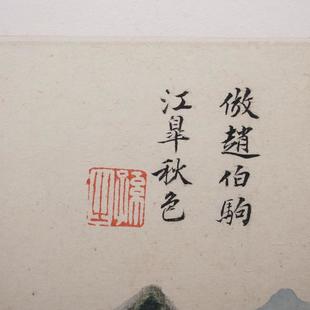 倣趙伯駒
江皐秋色